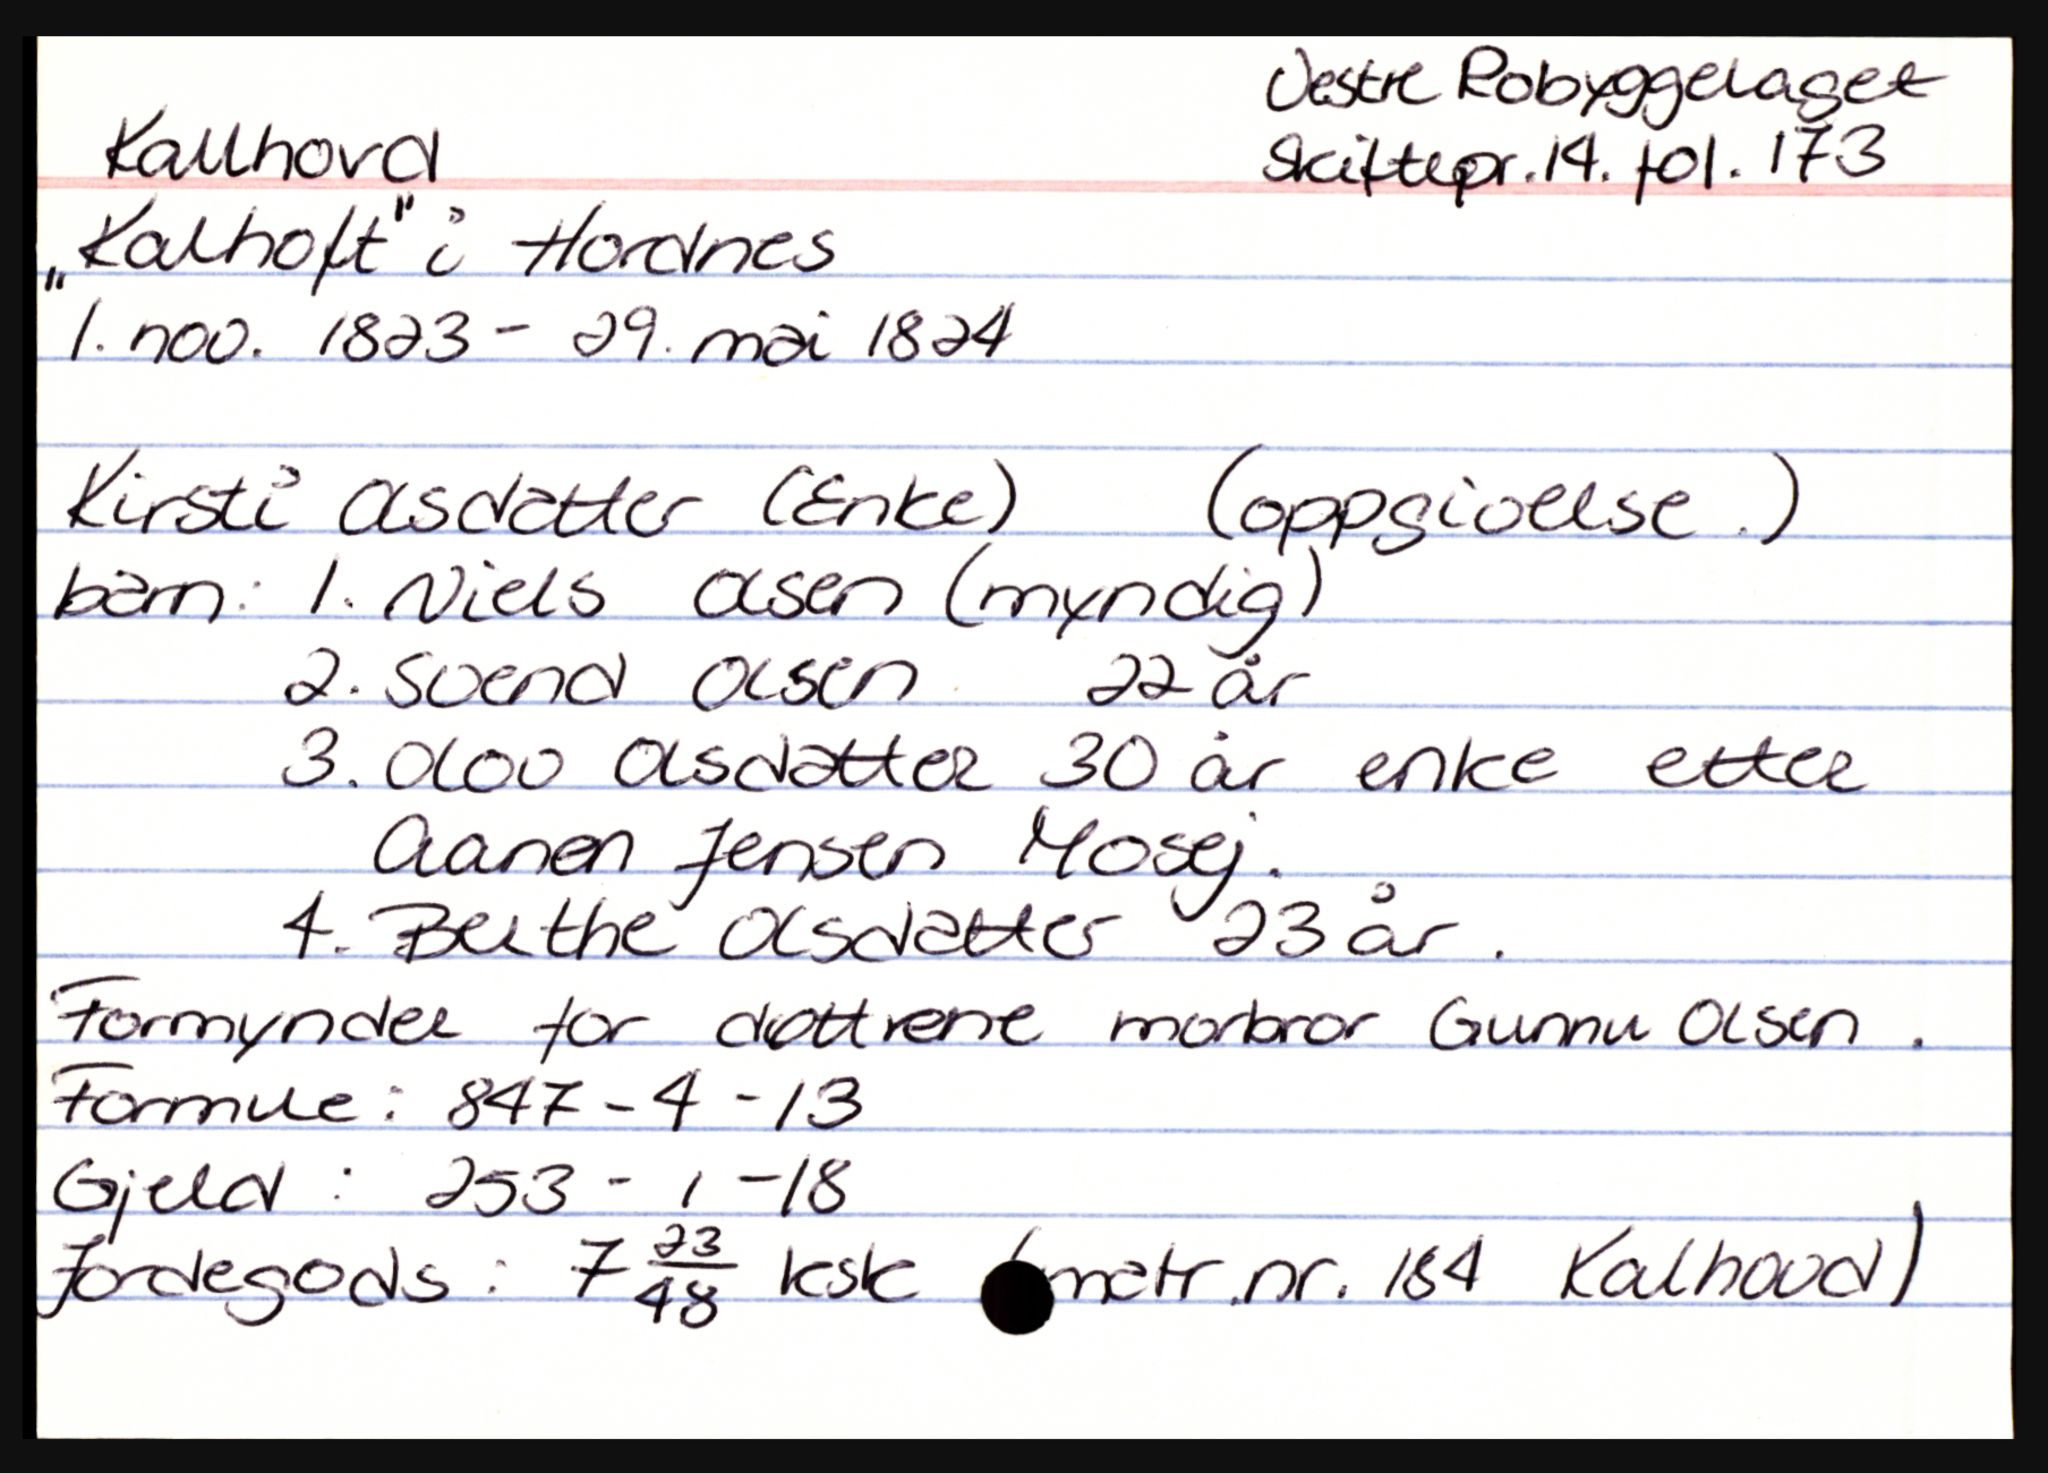 Vestre Robyggelaget
Kallhovd
Skiftepr. 14. fol. 173
"Kalhoft" i Hordnes
1. nov. 1823 - 29. mai 1824
Kirsti Olsdatter (Enke) (oppgivelse.)
barn: 1. Niels Olsen (myndig)
2. Svend Olsen 22 år
3. Olov Olsdatter 30 år enke etter
Aanen Jensen Mosej.
4. Berthe Olsdatter 23 år.
Formynder for døttrene morbror Gunnu Olsen.
Formue: 847 - 4 - 13
Gjeld: 253 - 1 - 18
Jordegods: 7 23/48 ksk (matr.nr. 184 Kalhovd)